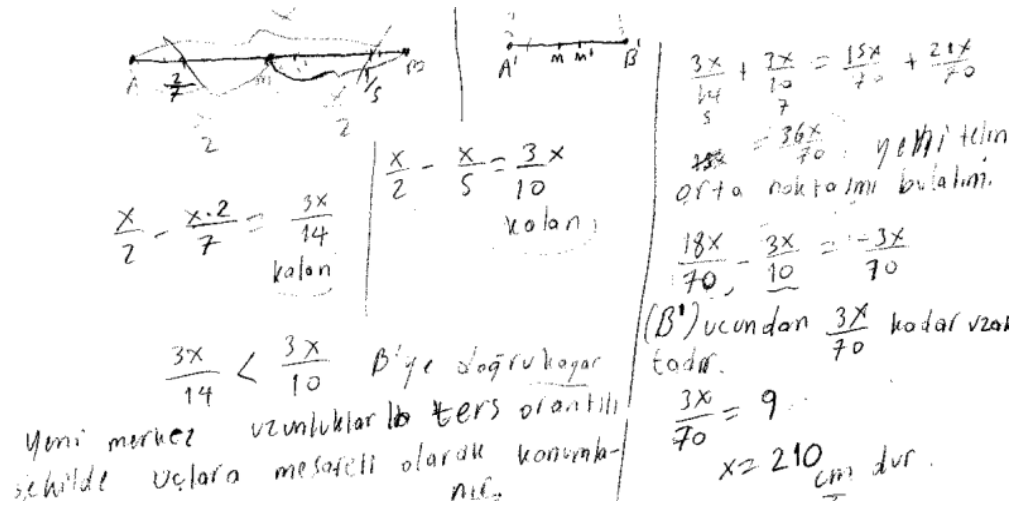 A 2/7 M 1/5 B
x/2 x/2
A' M M' B'
x/2 - x·2/7 = 3x/14
kalan
x/2 - x/5 = 3x/10
kalan
3x/14 < 3x/10 B'ye doğru kayar
Yeni merkez uzunluklarla ters orantılı
şekilde uçlara mesafeli olarak konumla-
nır.
3x/14 + 3x/10 = 15x/70 + 21x/70
5 7
= 36x/70 . yeni telin
orta noktasını bulalım.
18x/70 - 3x/10 = -3x/70
(B') ucundan 3x/70 kadar uzak
tadır.
3x/70 = 9
x = 210 cm dur.